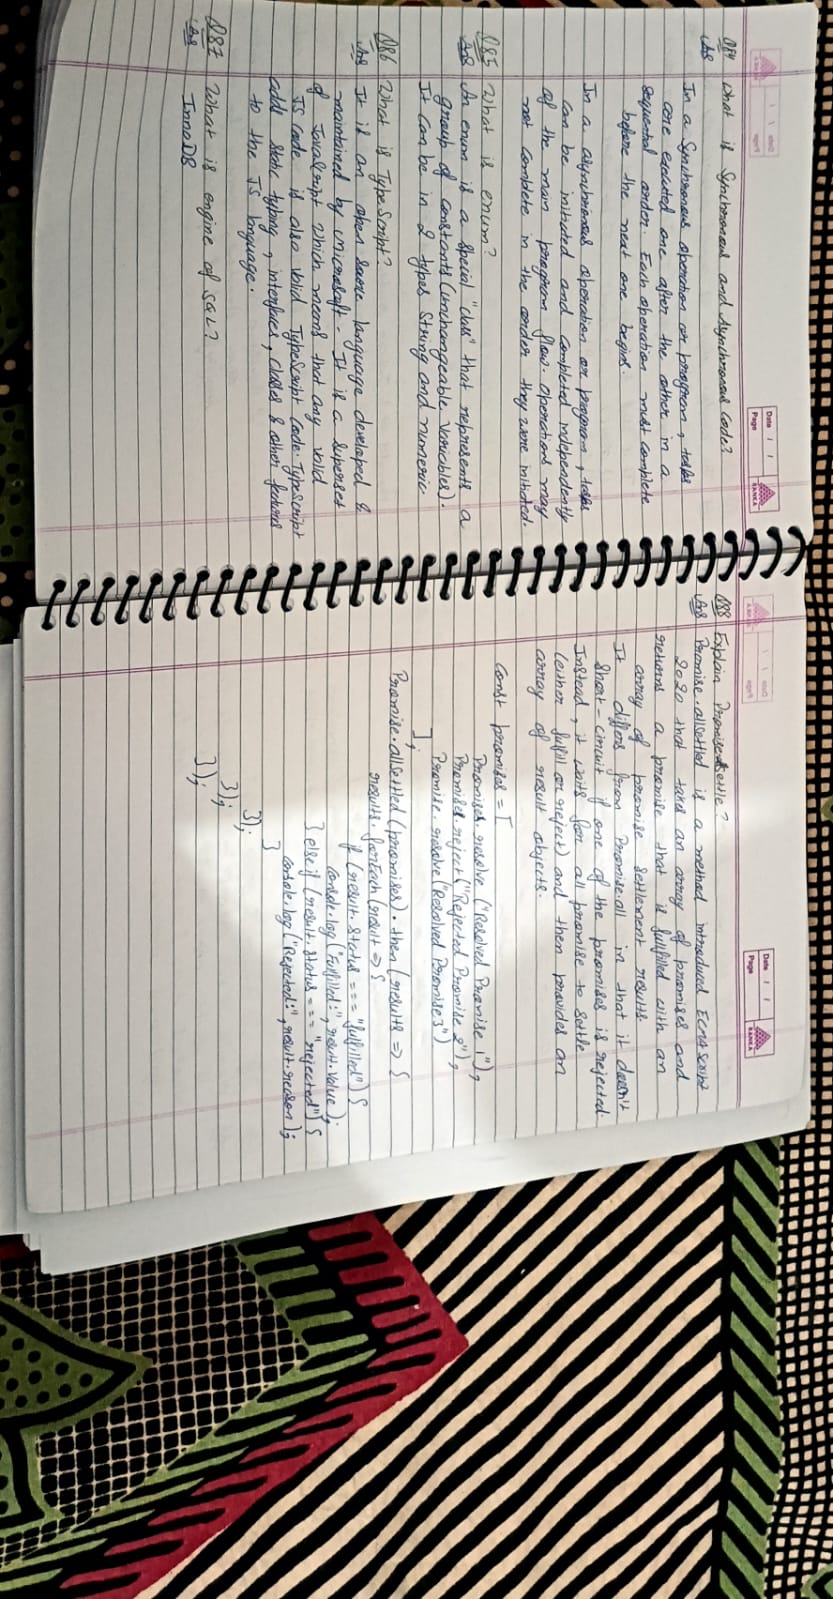 Date / /
Page
RANKA
Q84 What is Synchronous and Asynchronous Code?
Ans
In a Synchronous operation or program, tasks
are executed one after the other in a
sequential order. Each operation must complete
before the next one begins.
In a asynchronous operation or program, tasks
can be initiated and completed independently
of the main program flow. Operations may
not complete in the order they were initiated.
Q85 What is enum?
Ans An enum is a special "class" that represents a
group of constants (unchangeable variables).
It can be in 2 types String and numeric
Q86 What is TypeScript?
Ans It is an open source language developed &
maintained by Microsoft. It is a superset
of JavaScript which means that any valid
JS Code is also valid TypeScript Code. TypeScript
adds static typing, interfaces, classes & other features
to the JS language.
Q87 What is engine of SQL?
Ans InnoDB
Date / /
Page
RANKA
Q88 Explain Promise.settle?
Ans Promise.allSettled is a method introduced
2020 that takes an array of promises and
returns a promise that is fullfilled with an
array of promise settlement results.
It differs from Promise.all in that it doesn't
Short-circuit if one of the promises is rejected.
Instead, it waits for all promise to settle
(either fulfill or reject) and then provides an
array of result objects.
const promises = [
Promises.resolve ("Resolved Promise 1"),
Promises.reject ("Rejected Promise 2"),
Promise.resolve ("Resolved Promise 3")
];
Promise.allSettled (promises).then (results => {
results.forEach (result => {
if (result.status === "fulfilled") {
console.log ("Fulfilled:", result.value);
} else if (result.status === "rejected") {
console.log ("Rejected:", result.reason);
}
});
});
});